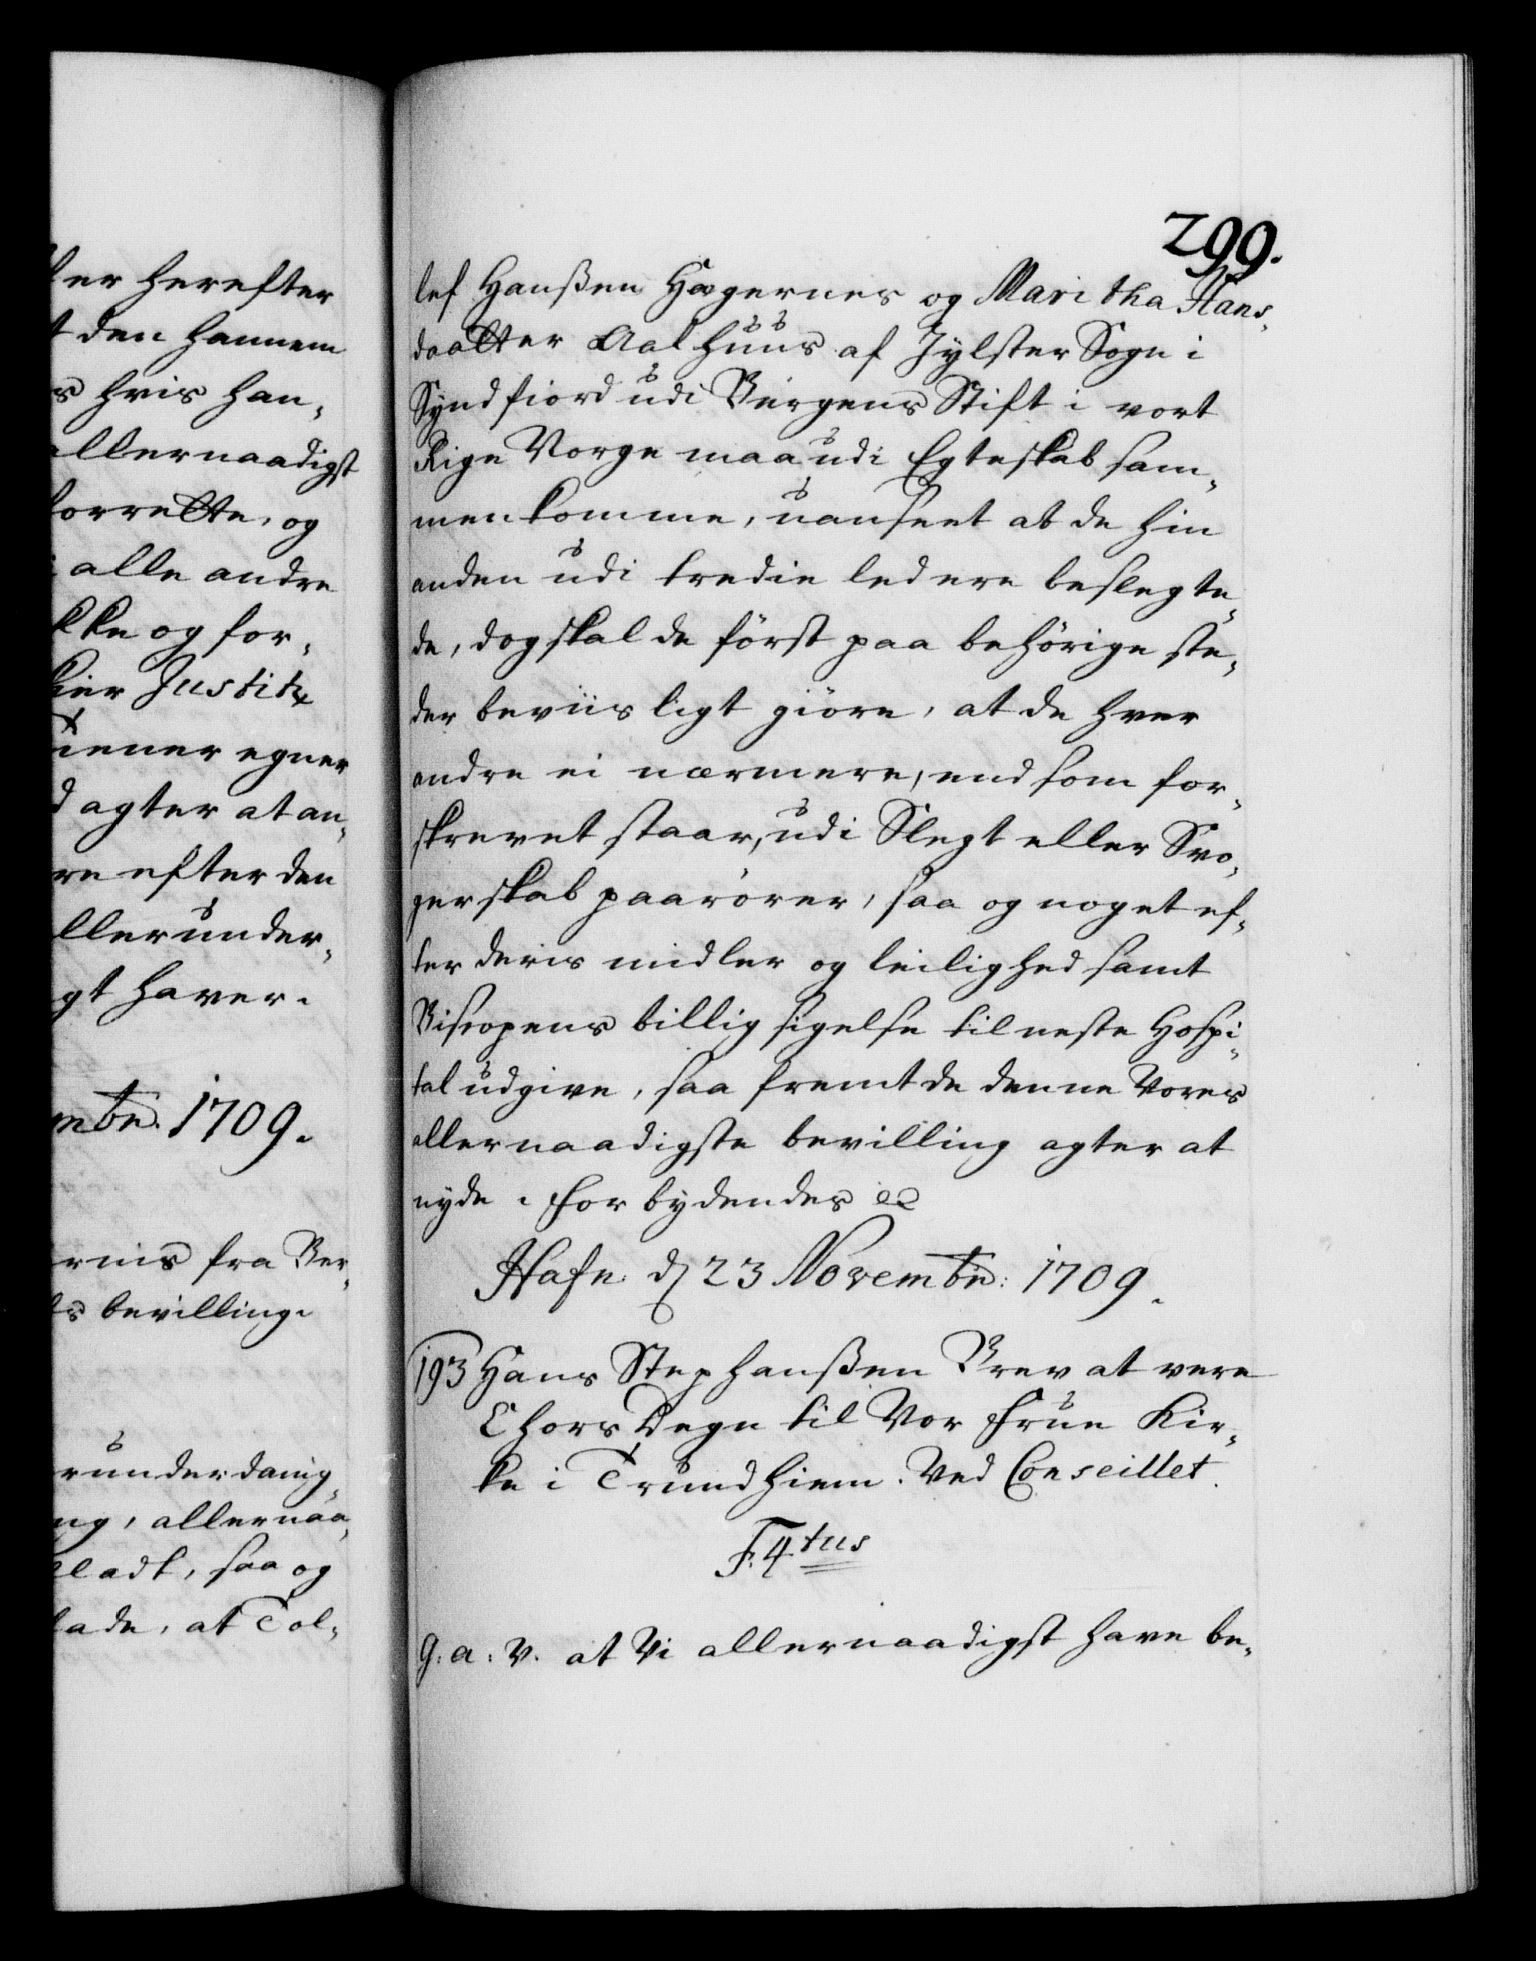 ler herefter
t den hannem
s hvis han„
allernaadigst
forrette, og
alle andre
kke og for„
kier Justitz
iener egner
d agter at an„
re efter den
ller under„
gt haver.
mbr: 1709.
rnis fra Ber„
ts bevilling.
runderdanig„
ng, allernaa„
ladt, saa og
lade, at Tol„
299.
lef Hanßen Hægernes og Maritha Hans„
daatter Aalhuus af Jylster Sogn i
Syndfiord udi Bergens Stift i vort
Rige Norge maa udi Egteskab sam„
menkomme, uanseet at de hin
anden udi tredie led ere beslegte„
de, dog skal de först paa behörige ste„
der beviisligt giöre, at de hver
andre ei nærmere, end som for„
skrevet staar, udi Slegt eller Svo„
gerskab paarörer, saa og noget ef„
ter deris midler og leilighed samt
Biscopens billig sigelse til neste Hospi„
tal udgive, saa fremt de denne Vores
allernaadigste bevilling agter at
nyde. Forbydendes &c
Hafn: d 23 Novembr: 1709.
193 Hans Stephanßen Brev at vere
Chors Degn til Vor Frue Kir„
ke i Trundhiem. Ved Conseillet.
F. 4tus
G. a. V. at Vi allernaadigst have be„